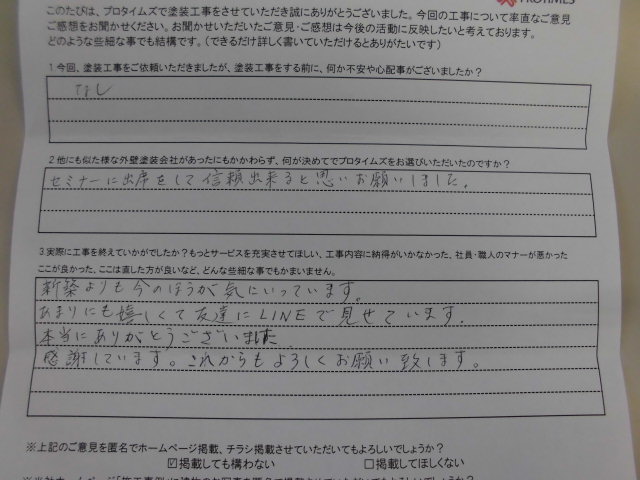 このたびは、プロタイムズで塗装工事をさせていただき誠にありがとうございました。今回の工事について率直なご意見
ご感想をお聞かせください。お聞かせいただいたご意見・ご感想は今後の活動に反映したいと考えております。
どのような些細な事でも結構です。(できるだけ詳しく書いていただけるとありがたいです)
1.今回、塗装工事をご依頼いただきましたが、塗装工事をする前に、何か不安や心配事がございましたか?
なし
2.他にも似た様な外壁塗装会社があったにもかかわらず、何が決めてでプロタイムズをお選びいただいたのですか?
セミナーに出席をして信頼出来ると思いお願いしました。
3.実際に工事を終えていかがでしたか?もっとサービスを充実させてほしい、工事内容に納得がいかなかった、社員・職人のマナーが悪かった
ここが良かった、ここは直した方が良いなど、どんな些細な事でもかまいません。
新築よりも今のほうが気にいっています。
あまりにも嬉しくて友達にLINEで見せています.
本当にありがとうございました.
感謝しています。これからもよろしくお願い致します。
※上記のご意見を匿名でホームページ掲載、チラシ掲載させていただいてもよろしいでしょうか?
☑掲載しても構わない □掲載してほしくない